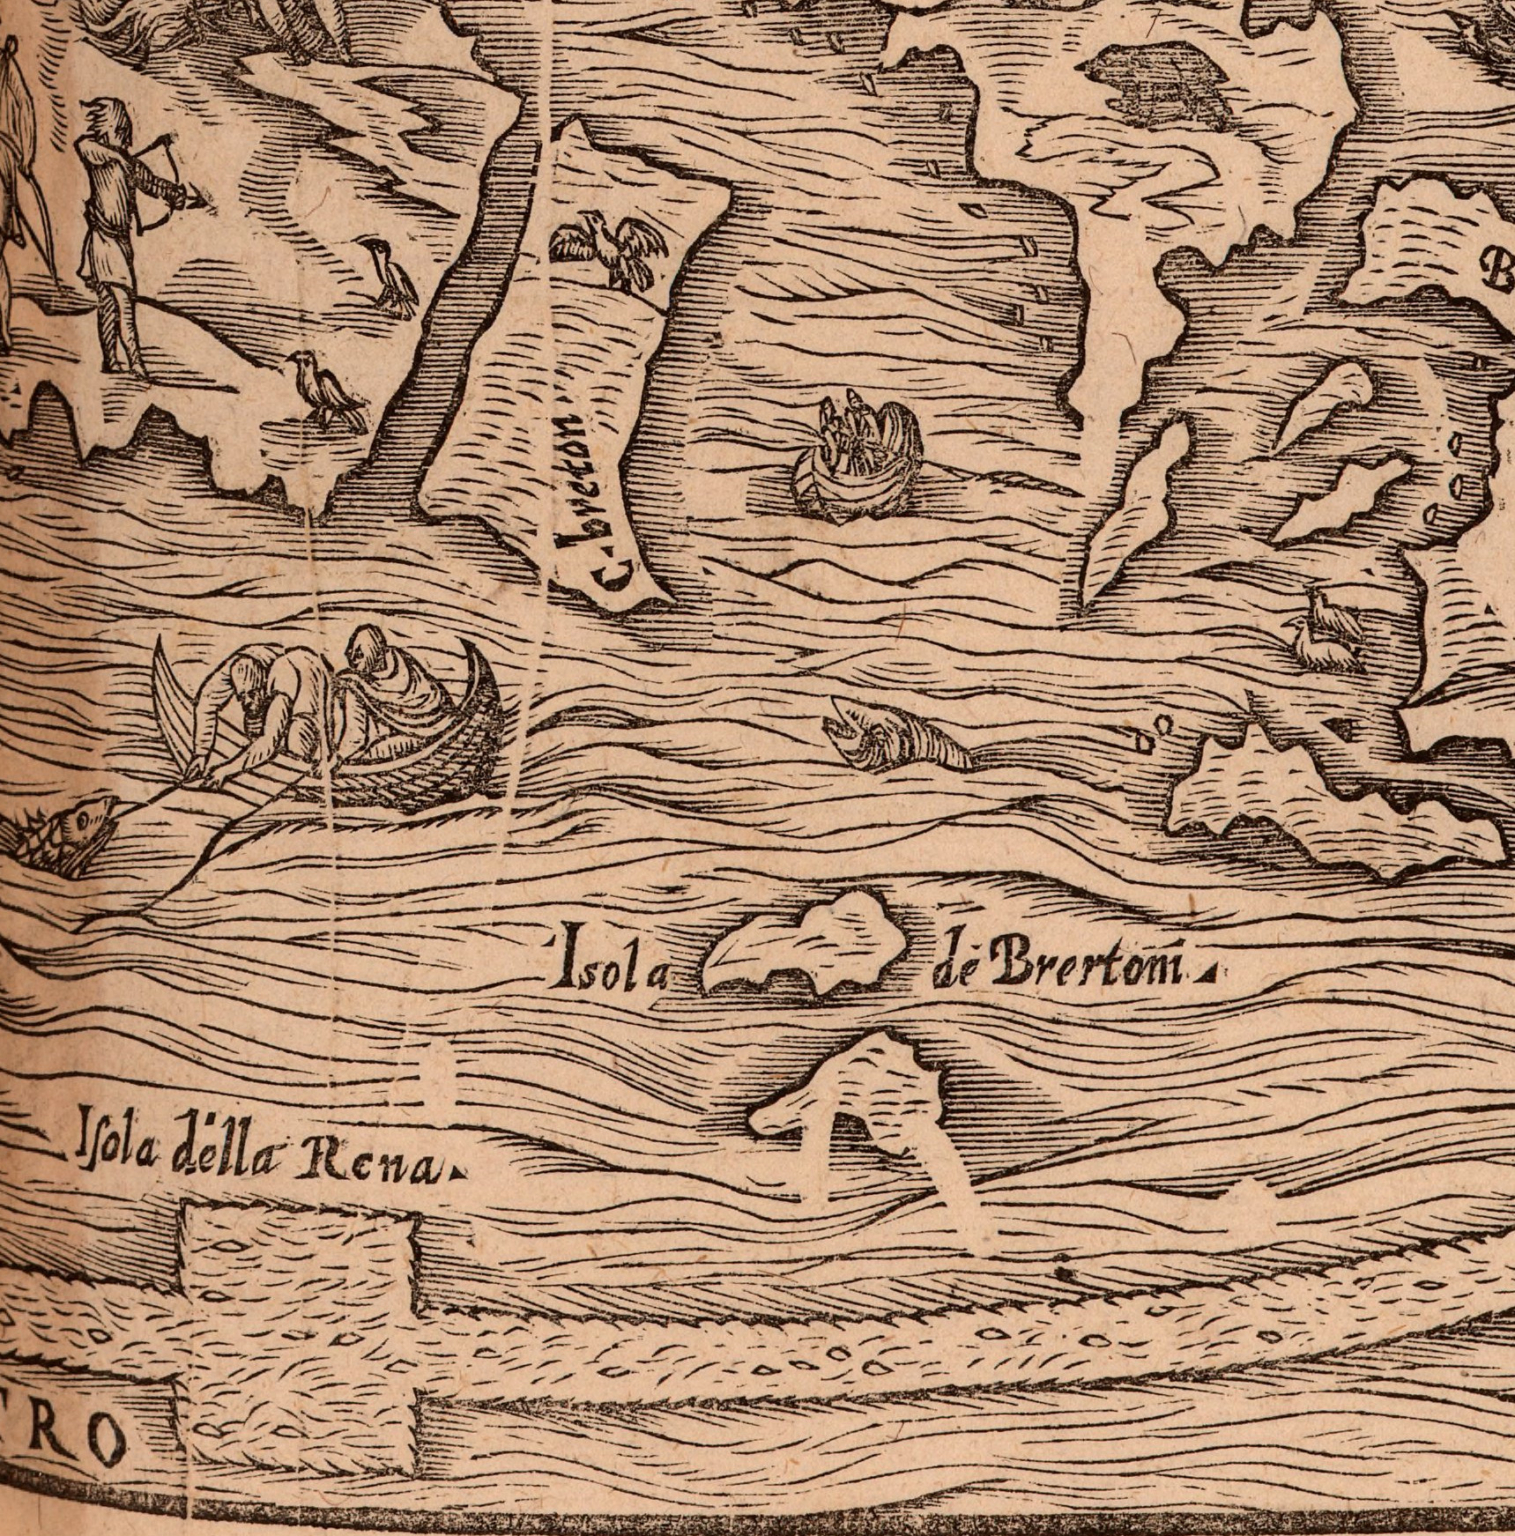 B
C. breton
Isola de Brertoni
Isola della Rena
TRO